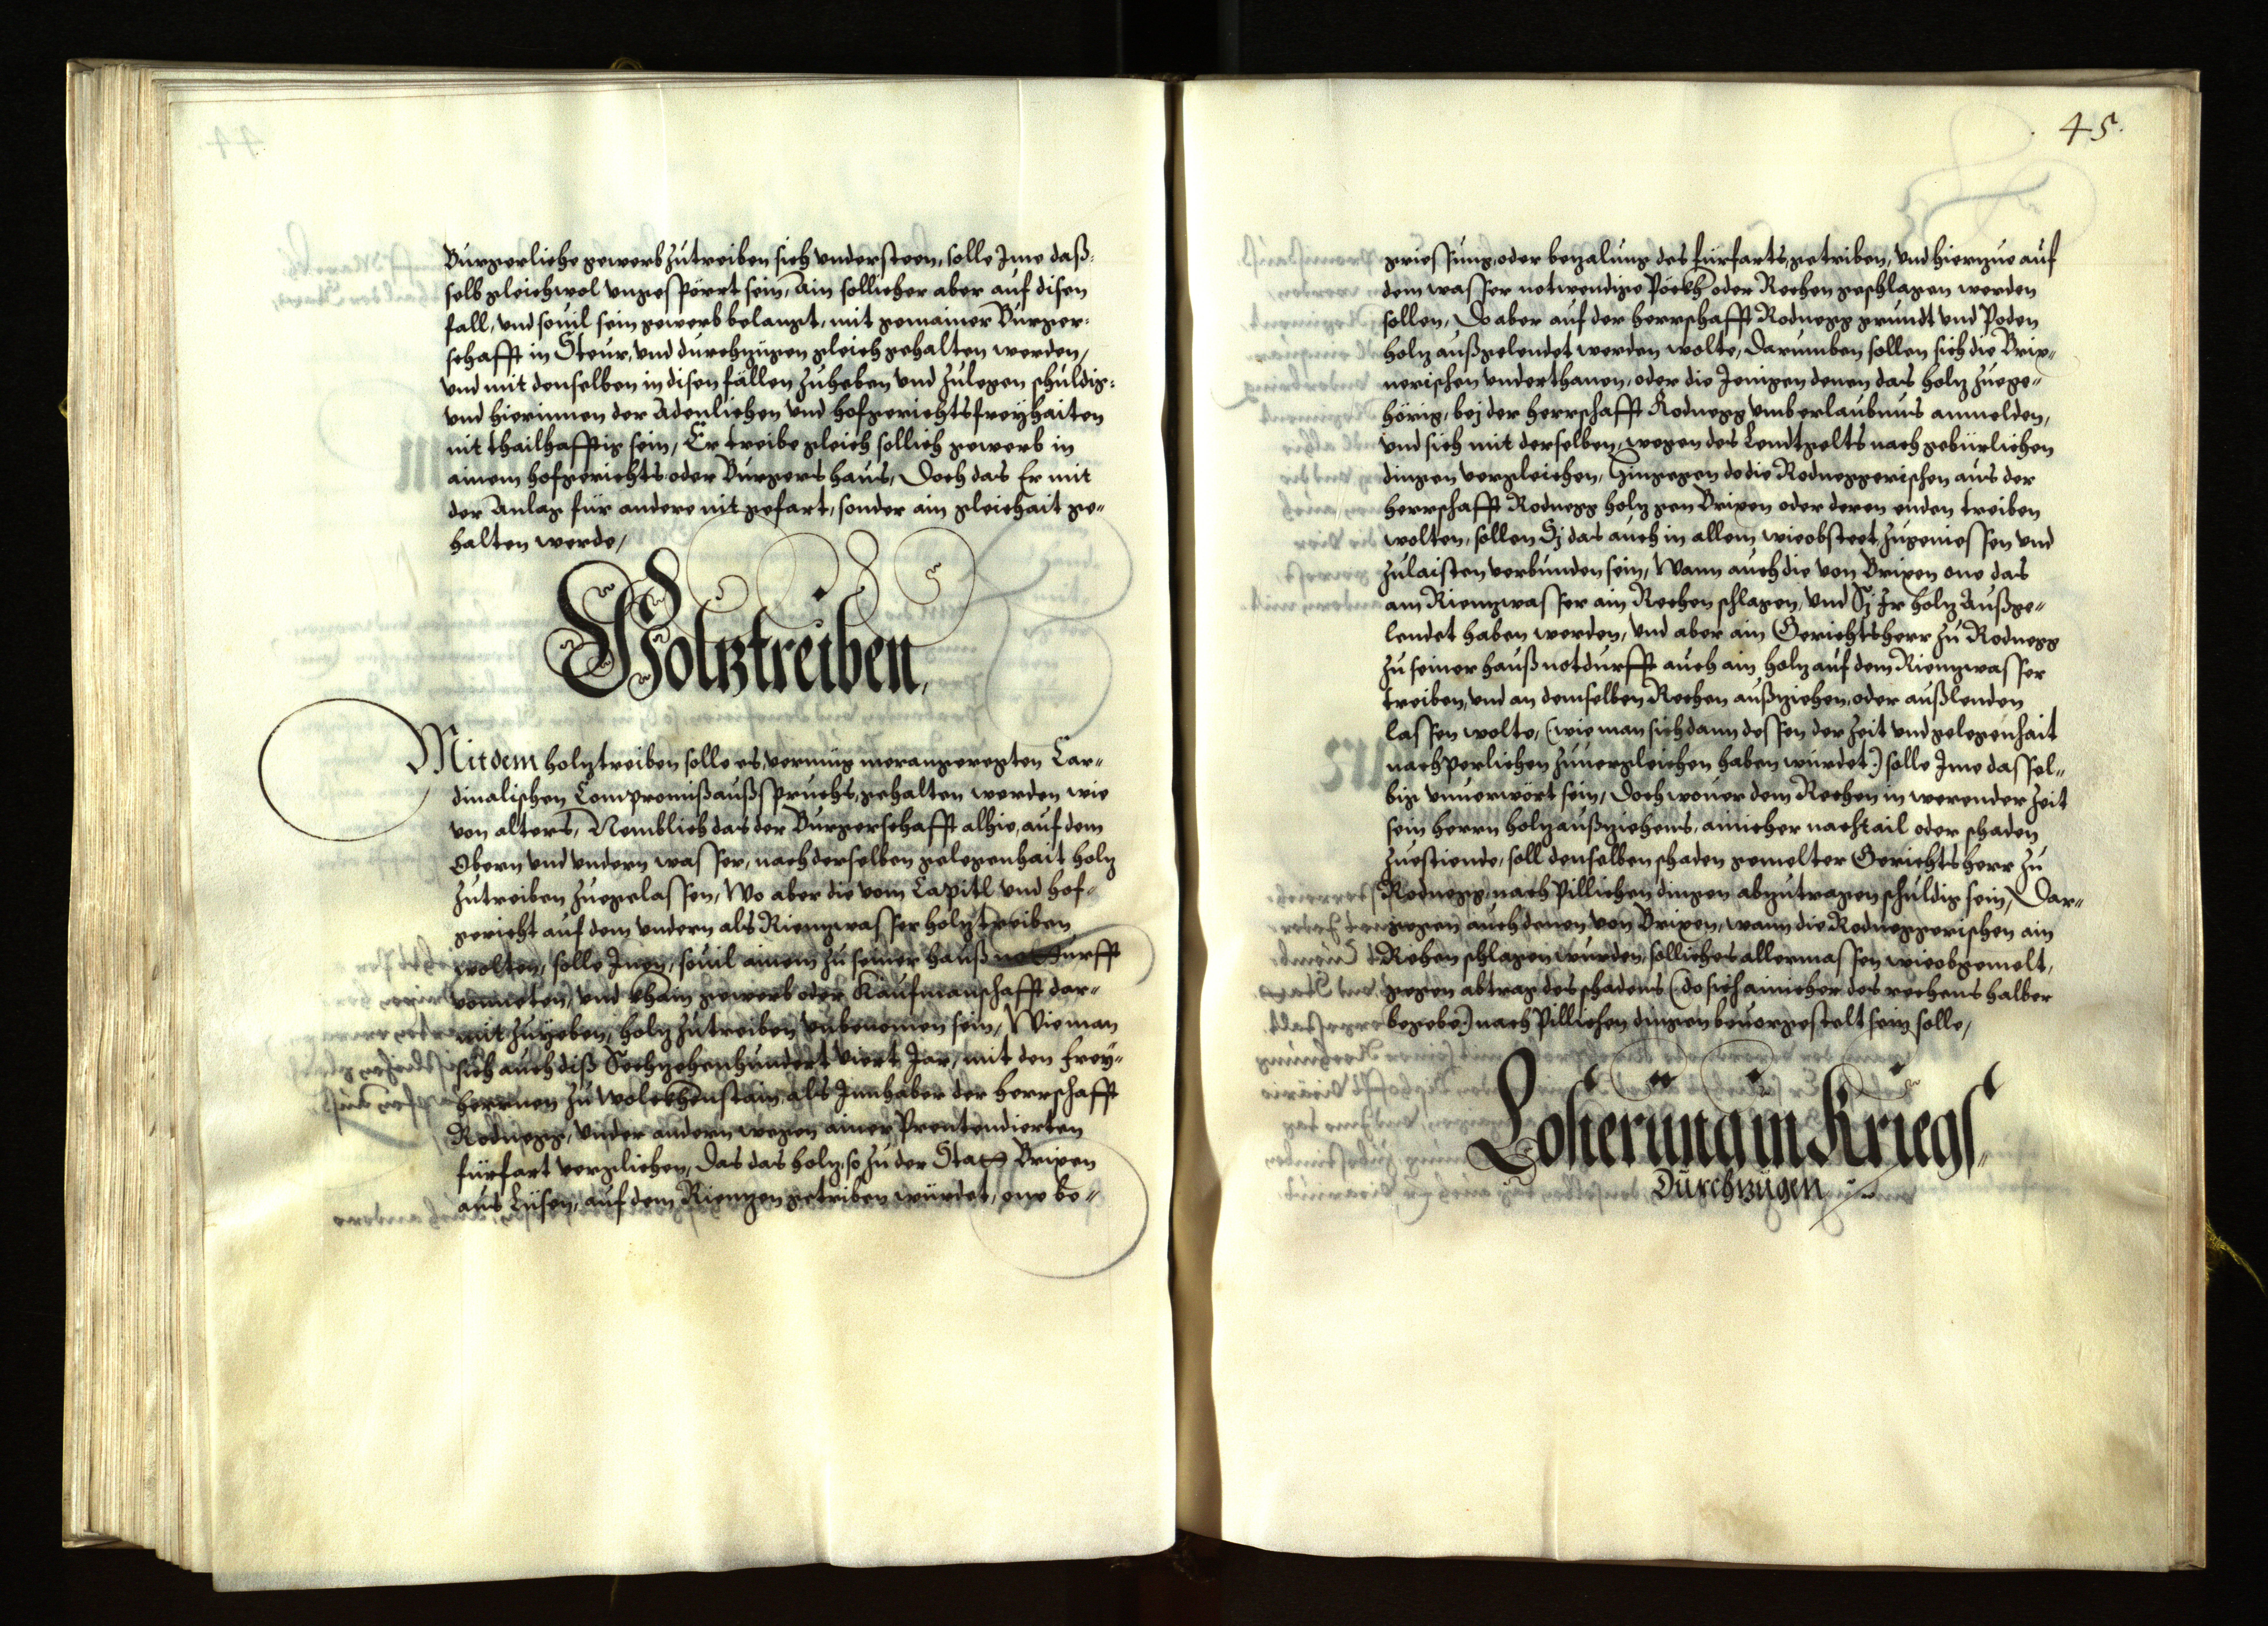 Burgerliche gewerb zutreiben sich understeen, solle Ime daß=
selb gleichwol ungespörrt sein, Ain sollicher aber auf disen
fall, und souil sein gewerb belangt, mit gemainer Burger=
schafft in Steur, und durchzügen gleich gehalten werden,
und mit denselben in disen fällen zuheben und zulegen schuldig=
und hierinnen der Adenlichen und hofgerichtsfreÿhaiten
nit thailhafftig sein, Er treibe gleich sollich gewerb in
ainem hofgerichts oder Burgers haus, Doch das Er mit
der Anlag für andere nit gefart, sonder ain gleichait ge=
halten werde,
Holztreiben,
Mit dem holztreiben solle es, vermüg merangeregten Car=
dinalischen Compromißaußspruchs, gehalten werden wie
von alters, Nemblich das der Burgerschafft alhie, auf dem
Obern und undern wasser, nach derselben gelegenhait holz
zutreiben zuegelassen, Wo aber die vom Capitl und hof=
gericht auf dem undern als Rienzwasser holz treiben
wolten, solle Inen, souil ainem zu seiner hauß notturfft
vonneten, und khain gewerb oder Kaufmanschafft dar=
mit zuÿeben, holz zutreiben unbenomen sein, Wie man
sich auch diß Sechzehenhundert viert Jar, mit den freÿ=
herrnen zu Wolckhenstain als Innhaber der herrschafft
Rodnegg, under andern wegen ainer Pretendierten
fürfart verglichen, Das das holz, so zu der Statt Brixen
aus Lüsen, auf dem Rienzen getriben würdet, one be=
45.
griessung, oder bezalung des fürfarts, getriben, und hierzue auf
dem wasser notwendige Pöckh oder Rechen geschlagen werden
sollen, Do aber auf der herrschafft Rodnegg grundt und Poden
holz außgelendet werden wolte, Darumben sollen sich die Brix=
nerischen underthanen, oder die Jenigen denen das holz zuege=
hörig, bej der herrschafft Rodnegg umb erlaubnus anmelden,
und sich mit derselben, wegen des Lendtgelts nach gebürlichen
dingen vergleichen, Hingegen do die Rodneggerischen aus der
herrschafft Rodnegg holz gen Brixen oder deren enden treiben
wolten, sollen Sj das auch in allem wie obsteet, zugeniessen und
zulaisten verbunden sein, Wann auch die von Brixen one das
am Rienzwasser ain Rechen schlagen, und Sj Ir holz Außge=
lendet haben werden, und aber ain Gerichtsherr zu Rodnegg
zu seiner hauß notdurfft auch ain holz auf dem Rienzwasser
treiben, und an demselben Rechen außziehen, oder außlenden
lassen wolte, (wie man sich dann dessen der zeit und gelegenhait
nachperlichen zuuergleichen haben würdet) solle Ime dassel=
big unuerwört sein, Doch wouer dem Rechen in werender zeit
sein herrn holz außziehens, ainicher nachtail oder schaden
zuestiende, soll denselben schaden gemelter Gerichtsherr zu
Rodnegg, nach Pillichen dingen abzutragen schuldig sein, Dar=
gegen auch denen von Brixen, wann die Rodneggerischen ain
Rechen schlagen wurden, solliches allermassen wie obgemelt,
gegen abtrag des schadens (do sich ainicher des rechens halber
begebe) nach Pillichen dingen beuorgestelt sein solle,
Losierung in Kriegs=
Durchzügen